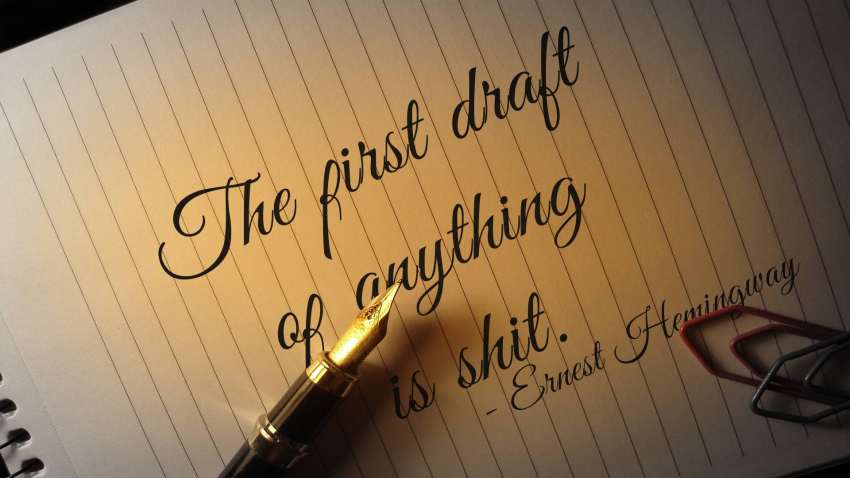 The first draft
of anything
is shit.
- Ernest Hemingway